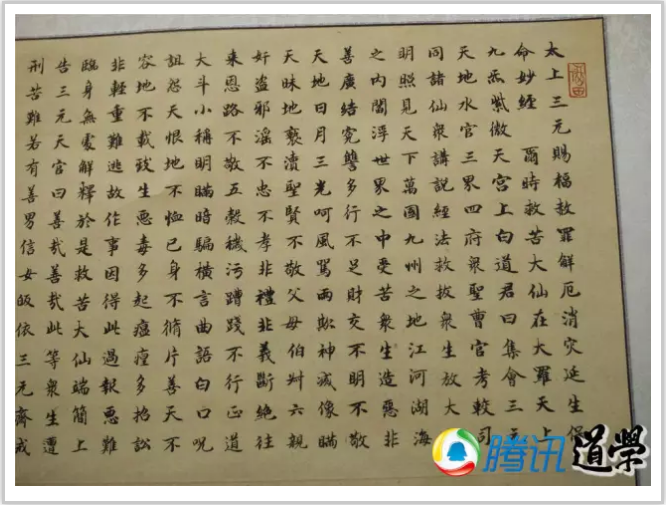 太上三元賜福赦罪解厄消災延生保
命妙經 爾時救苦大仙在大羅天上
九炁紫微天宮上白道君曰集會三元
天地水官三界四府衆聖曹官考較司
同諸仙衆講說經法救拔衆生放大
明照見天下萬國九州之地江河湖海
之內閻浮世界之中受苦衆生造惡非
善廣結寃讐多行不足財交不明不敬
天地日月三光呵風罵雨欺神滅像瞞
天昧地褻瀆聖賢不敬父母伯叔六親
奸盜邪滛不忠不孝非禮非義斷絕往
来恩路不敬五穀穢污蹧踐不行正道
大斗小稱明瞞時騙橫言曲語白口呪
詛怨天恨地不恤已身不脩片善天不
容地不載致生惡毒多起瘟多招訟
非輕重難逃故作事因得此過報惡難
臨身無處解釋於是救苦大仙端簡上
告三元天官曰善哉善哉此等衆生遭
刑苦難若有善男信女皈依三元齋戒
腾讯道學